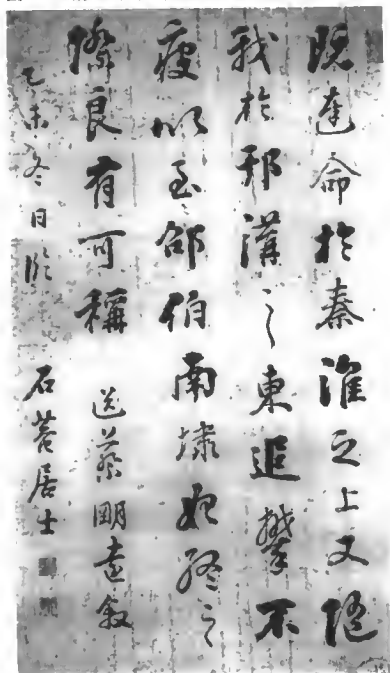 既達命於秦淮之上又隨
我於邗溝之東追攀不
疲以至邵伯南埭始終之
際良有可稱 送蔡明遠敘
乙未冬日臨 石菴居士